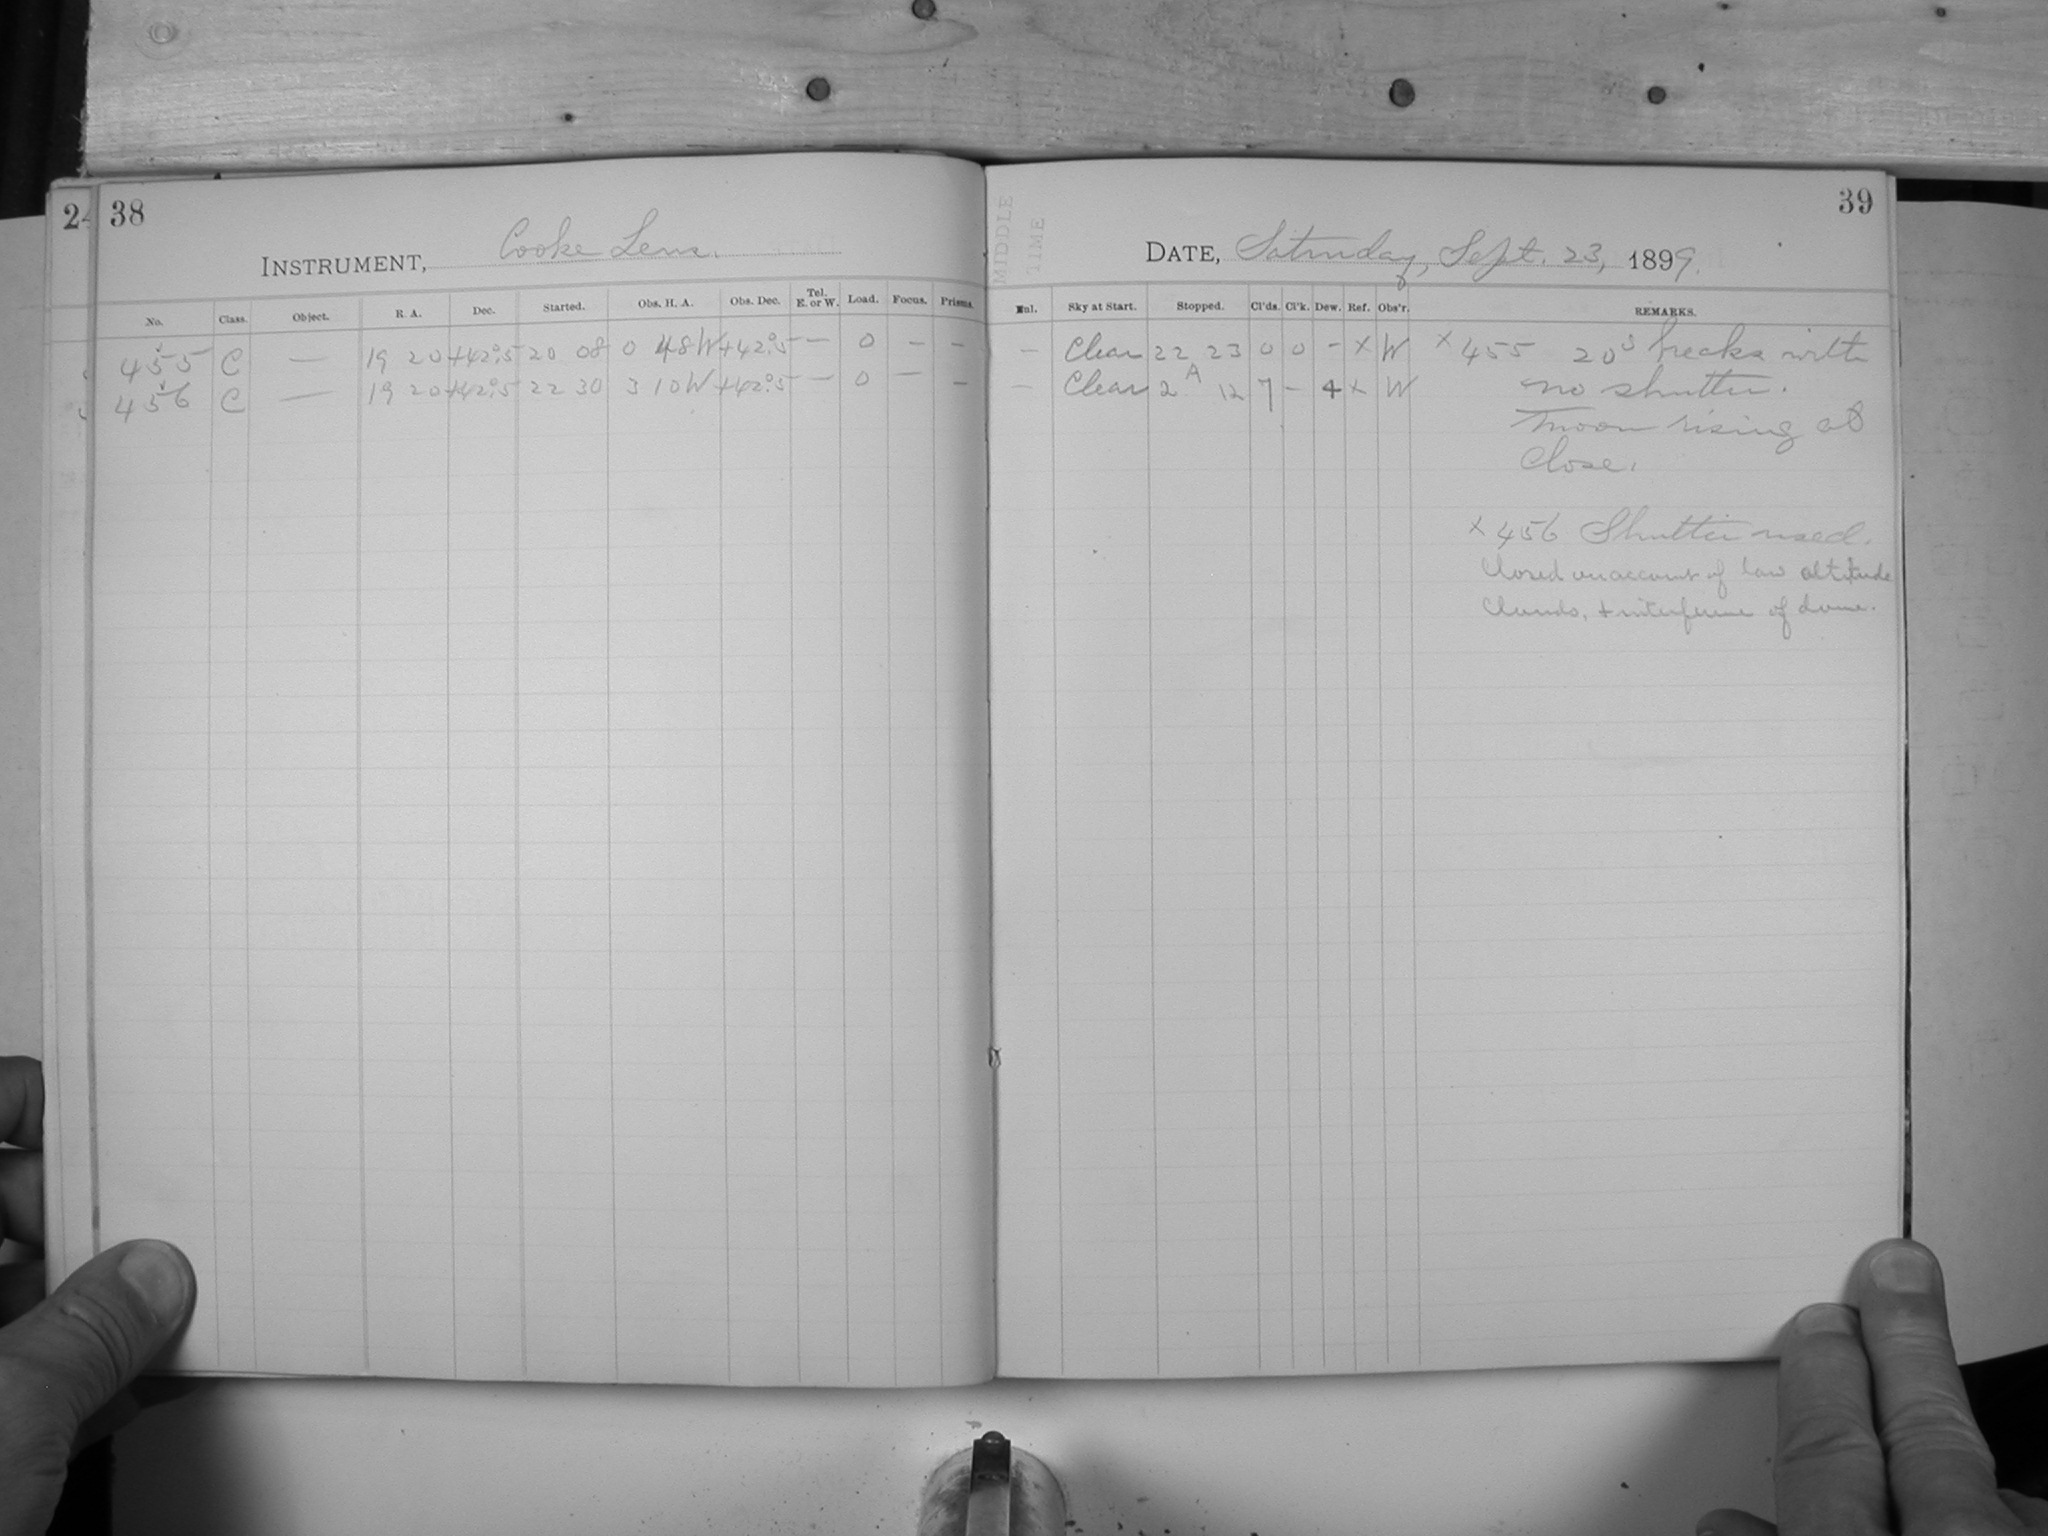 24
38
INSTRUMENT, Cooke Lens.
No. Class. Object. R. A. Dec. Started. Obs. H. A. Obs. Dec. Tel. E. or W. Load. Focus. Prisms.
455 C — 19 20 +42°.5 20 08 0 48W +42°.5 — 0 — —
456 C — 19 20 +42°.5 22 30 3 10W +42°.5 — 0 — —
39
MIDDLE
TIME
DATE, Saturday, Sept. 23, 1899.
Sky at Start. Stopped. Cl'ds. Cl'k. Dew. Ref. Obs'r. REMARKS.
— Clear 22 23 0 0 - x W x 455 20s breaks with
— Clear 2 A 12 7 - 4 x W no shutter.
Moon rising at
close.
x 456 Shutter used.
Closed on account of low altitude
Clouds, + interference of dome.